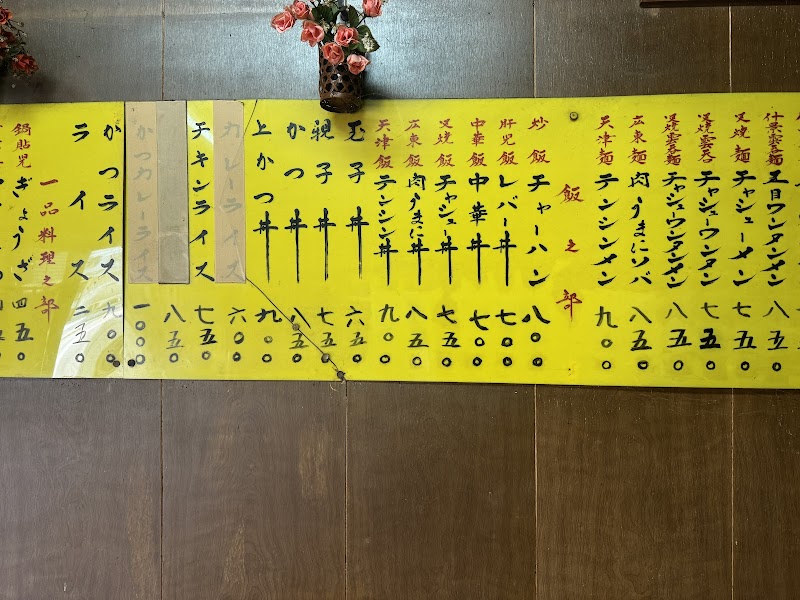 什景雲呑麺 五目ワンタンメン 八五〇
叉焼麺 チャシューメン 七五〇
叉焼雲呑 チャシューワンタン 七五〇
叉焼雲呑麺 チャシューワンタンメン 八五〇
広東麺 肉うまにソバ 八五〇
天津麺 テンシンメン 九〇〇
飯之部
炒飯 チャーハン 八〇〇
肝児飯 レバー丼 七〇〇
中華飯 中華丼 七〇〇
叉焼飯 チャシュー丼 七五〇
広東飯 肉うまに丼 八五〇
天津飯 テンシン丼 九〇〇
玉子丼 六五〇
親子丼 七五〇
かつ丼 八五〇
上かつ丼 九〇〇
カレーライス 六〇〇
チキンライス 七五〇
八五〇
かつカレーライス 一〇〇〇
かつライス 九〇〇
ライス 二五〇
一品料理之部
鍋貼児 ぎょうざ 四五〇